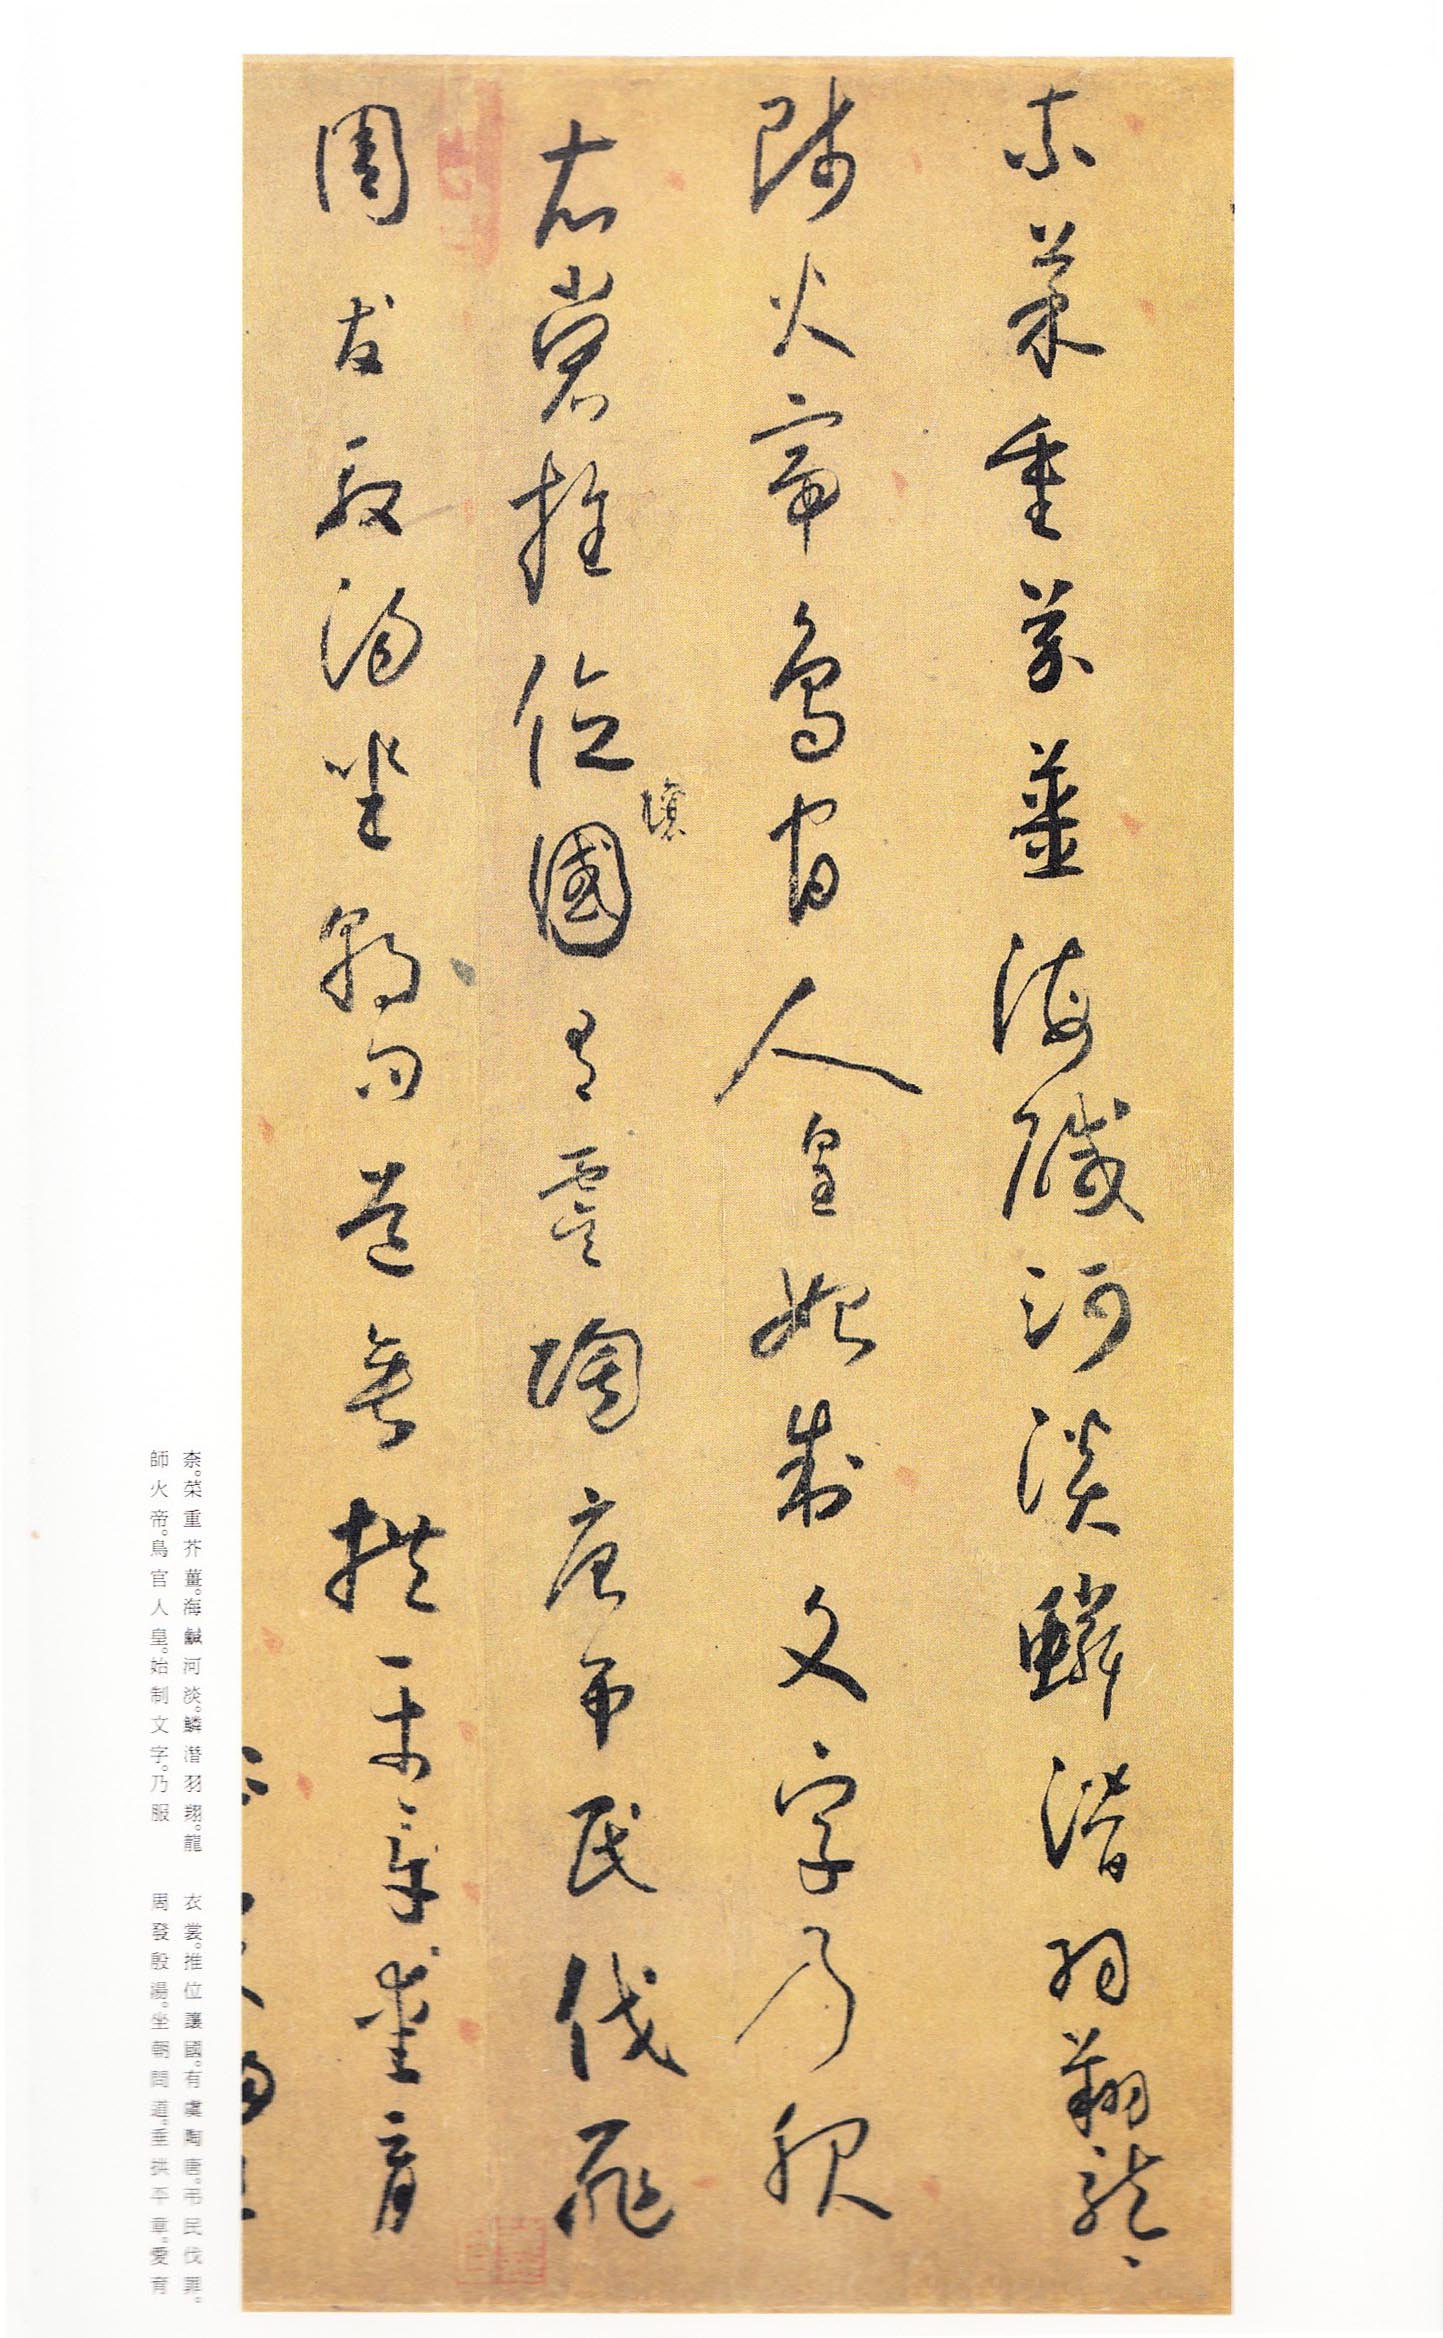 柰菜重芥薑海鹹河淡鱗潛羽翔龍
師火帝鳥官人皇始制文字乃服
衣裳推位讓國有虞陶唐弔民伐罪
周發殷湯坐朝問道垂拱平章愛育
柰。菜重芥薑。海鹹河淡。鱗潛羽翔。龍
師火帝。鳥官人皇。始制文字。乃服
衣裳。推位讓國。有虞陶唐。弔民伐罪。
周發殷湯。坐朝問道。垂拱平章。愛育